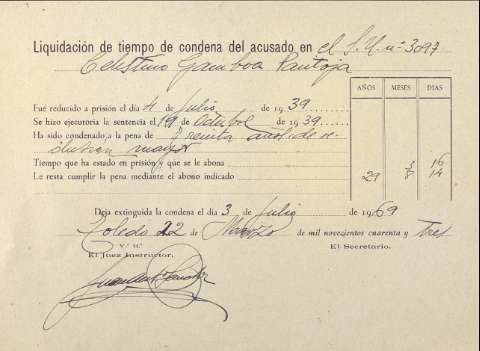 Liquidación de tiempo de condena del acusado en el S.U. nº 3097
Celestino Gamboa Pantoja
AÑOS MESES DIAS
Fué reducido a prisión el día 4 de Julio de 1939
Se hizo ejecutoria la sentencia el 19 de Octubre de 1939
Ha sido condenado a la pena de Treinta años de re
clusion mayor
Tiempo que ha estado en prisión y que se le abona 3 16
Le resta cumplir la pena mediante el abono indicado 29 8 14
Deja extinguida la condena el día 3 de Julio de 1969
Toledo 22 de Marzo de mil novecientos cuarenta y tres
V.º B.º
El Juez Instructor. El Secretario.